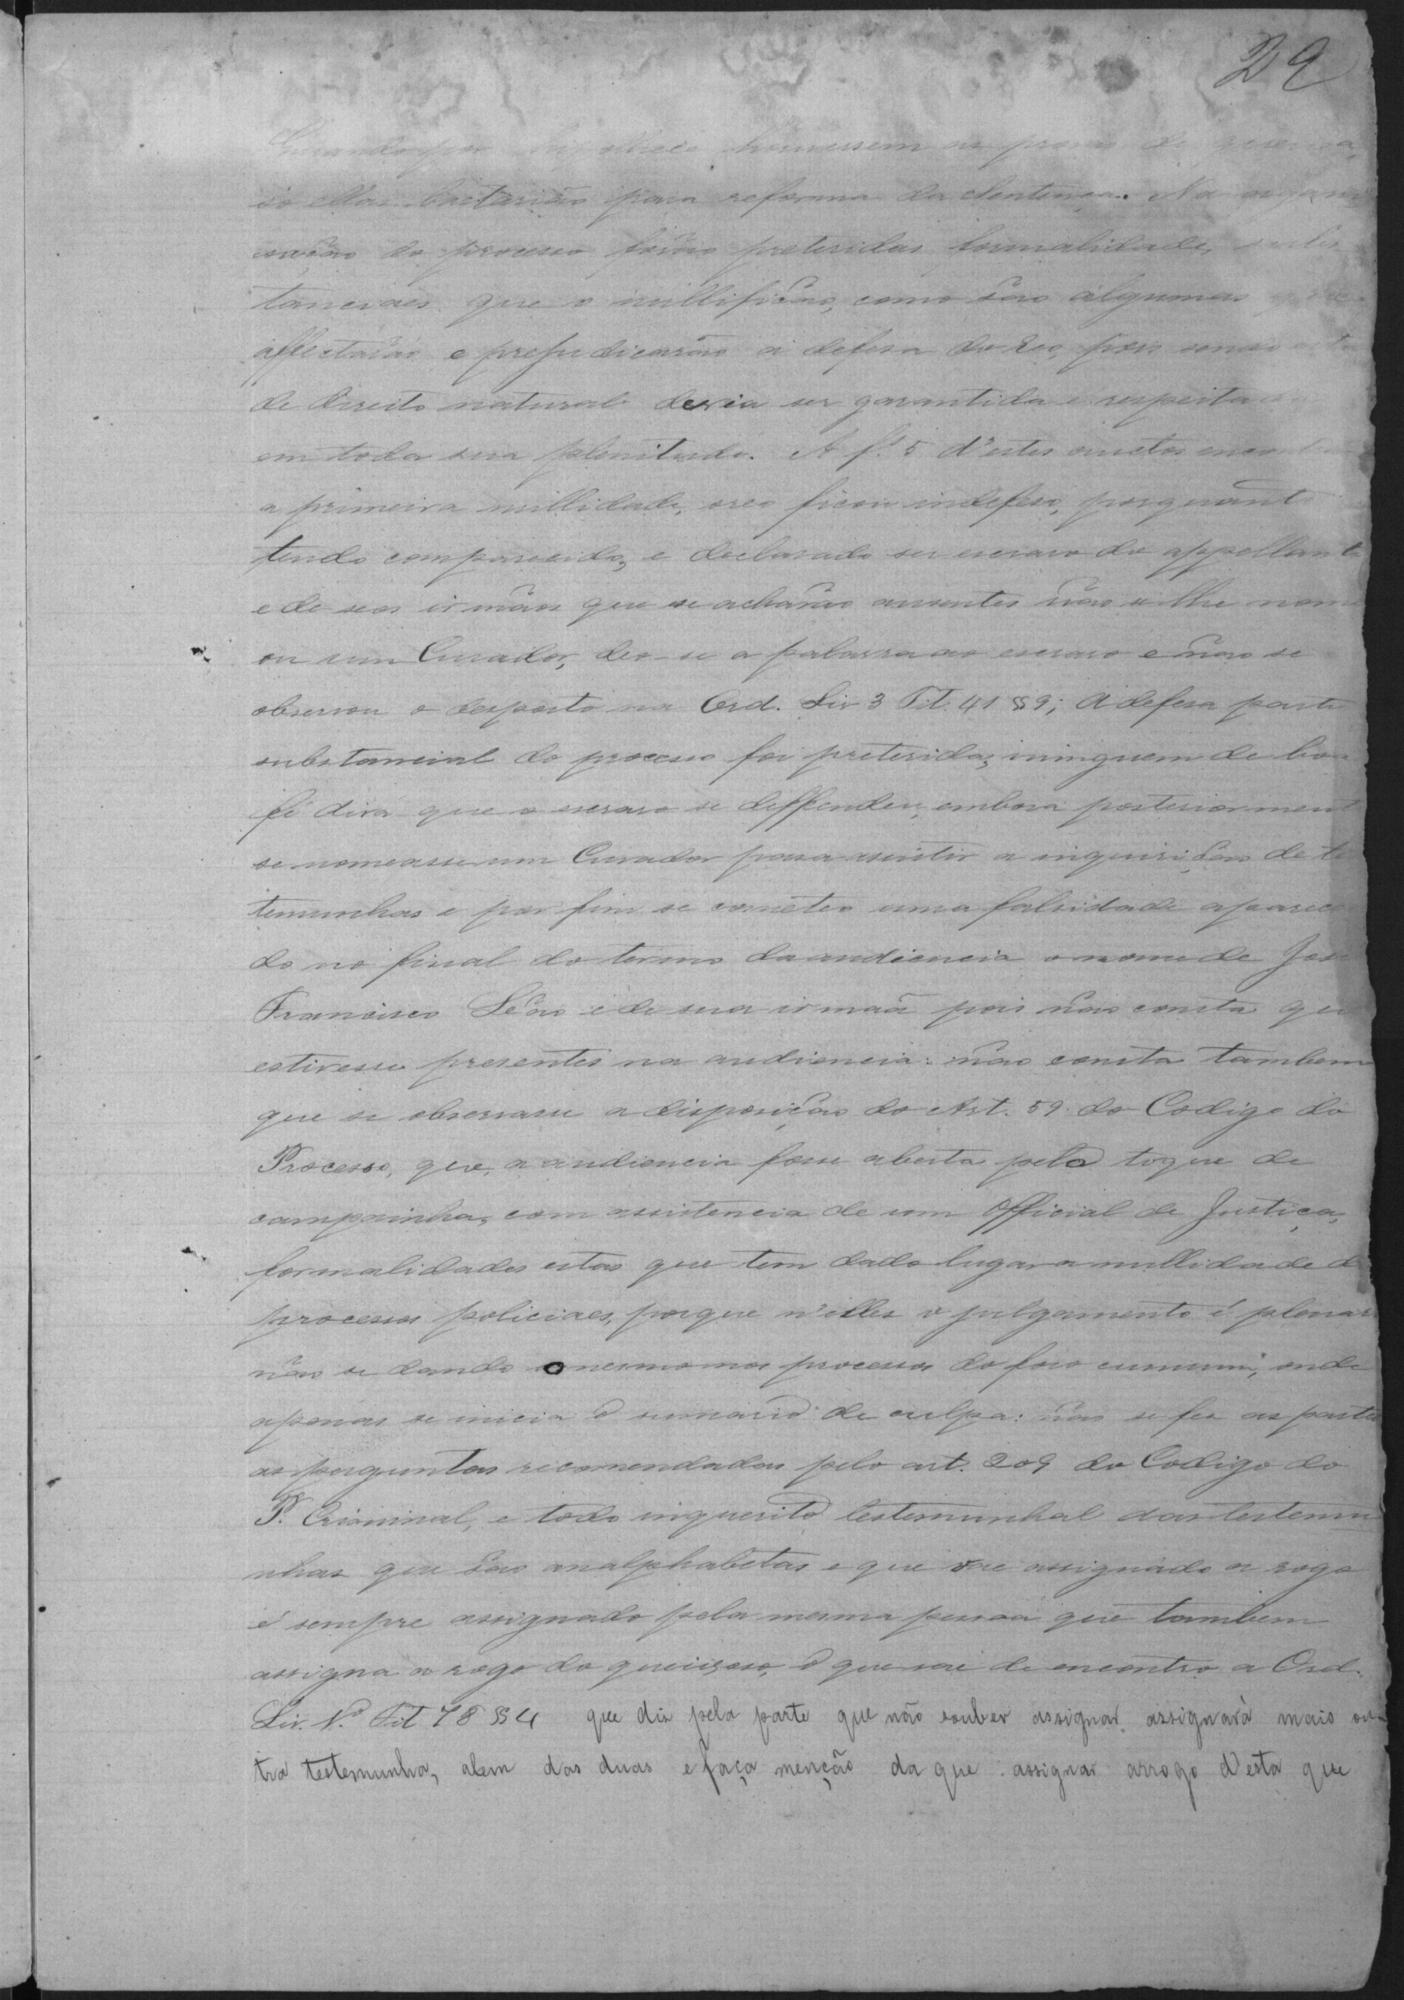 29
por hypothese houvessem as provas de
só ellas bastarião para reforma da Sentença. Na organi
sação do processo forão preteridas formalidades subs
tanciaes que o nullificão, como são algumas que
affectarão e prejudicarão a defesa do Reo, pois sendo esta
de Direito natural devia ser garantida e respeitada
em toda sua plenitude. A f. 5 d'estes autos encontra
a primeira nullidade, o reo ficou indefeso, porquanto
tendo comparecido, e declarado ser escravo do appellante
e de seos irmãos que se achavão ausentes não se lhe nome
ou um Curador, deo-se a palavra ao escravo e não se
observou o desposto na Ord. Liv 3 Tit. 41 § 9; A defesa parte
substancial do processo foi preterida; ninguem de boa
fé dirá que o escravo se deffendeu, embora posteriormente
se nomeasse um Curador para assistir a inquirição de tes
temunhas e por fim se cometeo uma falsidade aparecen
do no final do termo da audiencia o nome de José
Francisco Leão e de sua irmaã pois não consta que
estivesse presentes na audiencia: não consta tambem
que se observasse a disposição do Art. 59 do Codigo do
Processo, que a audiencia fosse aberta pelo toque de
campainha, com assistencia de um Official de Justiça,
formalidades estas que tem dado lugar a nullidade de
processos policiaes, porque n'elles o julgamento é plenario
não se dando o mesmo nos processos do foro comum, onde
apenas se inicia o sumario de culpa: não se fez as partes
as perguntas recomendadas pelo art. 209 do Codigo do
P. Criminal, e todo inquerito testemunhal das testemu
nhas que são analphabetas e que vae assignado a rogo
é sempre assignado pela mesma pessoa que tambem
assigna a rogo do queixoso, o que vae de encontro a Ord.
Liv. 1º Tit 78 § 4 que diz pela parte que não souber assignar assignarà mais ou-
tra testemunha, alem das duas e faça menção da que assignar arrogo d'esta que